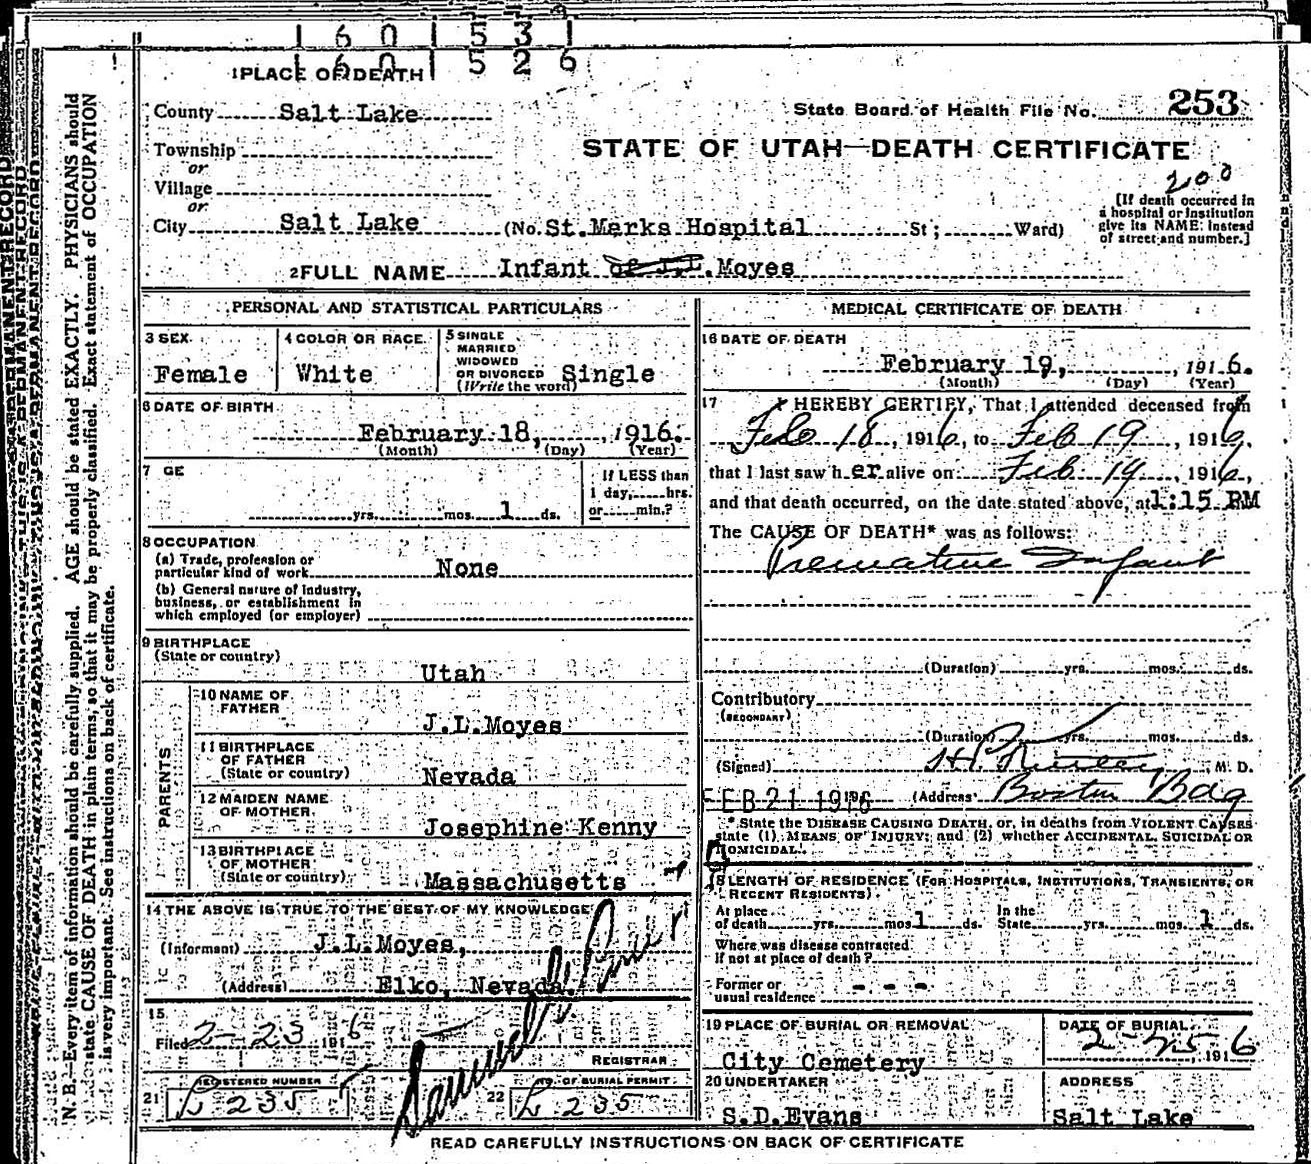 1 6 0 1 5 3 1
1 6 0 1 5 2 6
1 PLACE OF DEATH
County Salt Lake
State Board of Health File No. 253
Township
or
Village
or
City Salt Lake
STATE OF UTAH—DEATH CERTIFICATE
200
(No. St. Marks Hospital St; Ward)
[If death occurred in
a hospital or institution
give its NAME instead
of street and number.]
2 FULL NAME Infant of J.L. Moyes
PERSONAL AND STATISTICAL PARTICULARS
3 SEX
Female
4 COLOR OR RACE
White
5 SINGLE
MARRIED
WIDOWED
OR DIVORCED
(Write the word) Single
6 DATE OF BIRTH
February 18, 1916.
(Month) (Day) (Year)
7 GE
yrs. mos. 1 ds.
If LESS than
1 day, hrs.
or min.?
8 OCCUPATION
(a) Trade, profession or
particular kind of work None
(b) General nature of industry,
business, or establishment in
which employed (or employer)
9 BIRTHPLACE
(State or country)
Utah
PARENTS
10 NAME OF
FATHER
J.L.Moyes
11 BIRTHPLACE
OF FATHER
(State or country) Nevada
12 MAIDEN NAME
OF MOTHER
Josephine Kenny
13 BIRTHPLACE
OF MOTHER
(State or country)
Massachusetts
14 THE ABOVE IS TRUE TO THE BEST OF MY KNOWLEDGE
(Informant) J.L.Moyes,
(Address) Elko, Nevada.
15
Filed 2-23 1916
REGISTRAR
21 REGISTERED NUMBER
L 235
22 NO. OF BURIAL PERMIT
L 235
MEDICAL CERTIFICATE OF DEATH
16 DATE OF DEATH
February 19, 1916.
(Month) (Day) (Year)
17 I HEREBY CERTIFY, That I attended deceased from
Feb 18, 1916, to Feb 19, 1916,
that I last saw h er alive on Feb 19, 1916,
and that death occurred, on the date stated above, at 1:15 PM
The CAUSE OF DEATH* was as follows:
Premature Infant
(Duration) yrs. mos. ds.
Contributory
(SECONDARY)
(Duration) yrs. mos. ds.
(Signed) M. D.
FEB 21 1916 (Address) Boston Bdg
*State the DISEASE CAUSING DEATH, or, in deaths from VIOLENT CAUSES
state (1) MEANS OF INJURY; and (2) whether ACCIDENTAL SUICIDAL OR
HOMICIDAL.
18 LENGTH OF RESIDENCE (FOR HOSPITALS, INSTITUTIONS, TRANSIENTS, OR
RECENT RESIDENTS)
At place
of death yrs. mos. 1 ds.
In the
State yrs. mos. 1 ds.
Where was disease contracted
if not at place of death?
Former or
usual residence - - -
19 PLACE OF BURIAL OR REMOVAL
City Cemetery
DATE OF BURIAL
2-25 1916
20 UNDERTAKER
S.D.Evans
ADDRESS
Salt Lake
READ CAREFULLY INSTRUCTIONS ON BACK OF CERTIFICATE
N. B.—Every item of information should be carefully supplied. AGE should be stated EXACTLY. PHYSICIANS should
state CAUSE OF DEATH in plain terms, so that it may be properly classified. Exact statement of OCCUPATION
is very important. See instructions on back of certificate.